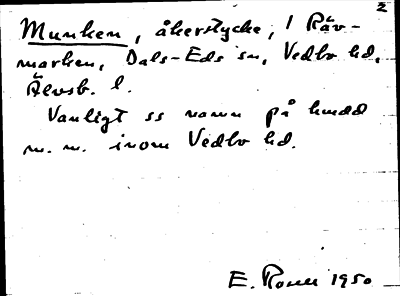 2
Munken, åkerstycke, i Räv-
marken, Dals-Eds sn, Vedbo hd,
Älvsb. l.
Vanligt ss namn på hudd
m. m. inom Vedbo hd.
E. Rosell 1950